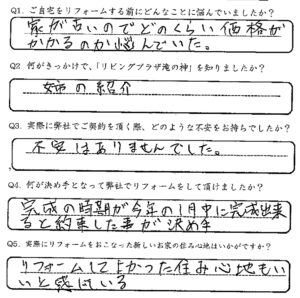 Q1. ご自宅をリフォームする前にどんなことに悩んでいましたか？
家が古いのでどのくらい価格が
かかるのか悩んでいた。
Q2. 何がきっかけで、「リビングプラザ滝の神」を知りましたか？
姉の紹介
Q3. 実際に弊社でご契約を頂く際、どのような不安をお持ちでしたか？
不安はありませんでした。
Q4. 何が決め手となって弊社でリフォームをして頂けましたか？
完成の時期が今年の1月中に完成出来
ると約束した事が決め手
Q5. 実際にリフォームをおこなった新しいお家の住み心地はいかがですか？
リフォームしてよかった住み心地もい
いと感じている